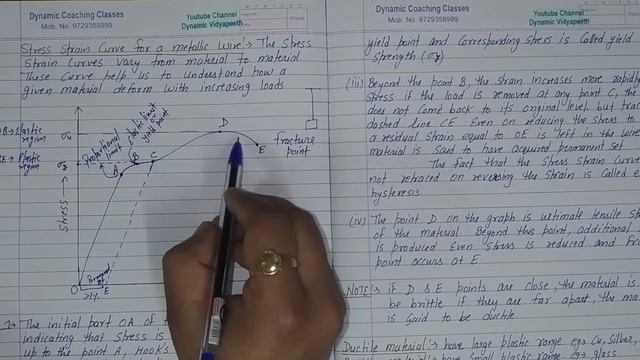 Dynamic Coaching Classes
Mob. No. 9729358989
Youtube Channel
Dynamic Vidyapeeth
Stress Strain Curve for a metallic wire :→ The stress
Strain Curves vary from material to material
These Curve help us to understand how a
given material deform with increasing loads
elastic limit
yield point
Proportional
limit
region
region
Stress →
σy
O
A
B
C
D
E
E
fracture
point
The initial part OA of
indicating that stress is
up to the point A, Hook's
DYNAMIC COACHING CLASSES
Mob. No. 9729358989
Youtube Channel
Dynamic Vidyapeeth
yield point and Corresponding stress is Called yield
strength (σy)
(iii) Beyond the point B, the strain increases more rapidly
stress if the load is removed at any point C, the
does not come back to its original level but trac
dashed line CE Even on reducing the stress to
a residual strain equal to OE is left in the wire
material is said to have acquired permanent set
The fact that the stress strain Curve
not retraced on reversing the strain is Called e
hysteresis.
(iv) The point D on the graph is ultimate tensile st
of the material Beyond this point, additional
is produced Even stress is reduced and
point occurs at E.
NOTE:→ if D & E points are close, the material is
be brittle if they are far apart, the ma
is said to be ductile
Ductile material's :→ have large plastic range eg→ Cu, Silver,